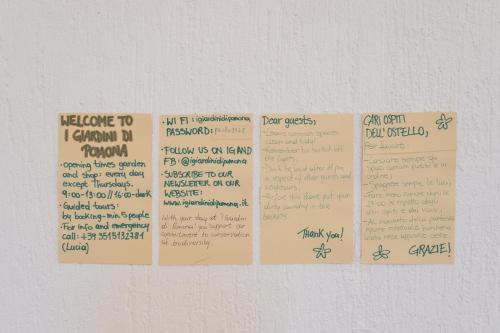 WELCOME TO
I GIARDINI DI
POMONA
• Opening times garden
and shop: every day
except Thursdays.
9:00-13:00 // 16:00-dusk
• Guided tours:
by booking - min. 5 people
• For info and emergency
call: +39 3515132781
(Lucia)
• WI FI: igiardinidipomona,
PASSWORD:
• FOLLOW US ON IG AND
FB: @igiardinidipomona
• SUBSCRIBE TO OUR
NEWSLETTER ON OUR
WEBSITE:
www.igiardinidipomona.it
With your stay at I Giardini
di Pomona you support our
commitment to conservation
of biodiversity.
Dear guests,
• Leave common spaces
clean and tidy!
• Remember to switch off
the lights;
in respect of other guests and
• Before
dirty laundry in the
baskets
THANK YOU!
CARI OSPITI
DELL'OSTELLO,
Per favore:
• Lasciare sempre gli
spazi comuni puliti e in
ordine;
• Spegnere sempre le luci;
• Fare meno rumore dopo le
23:00 in rispetto degli
altri ospiti e dei vicini;
• Al momento della partenza
GRAZIE!